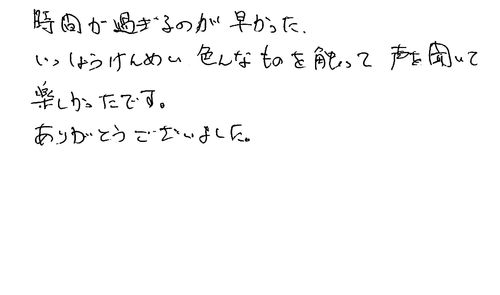 時間が過ぎるのが早かった.
いっしょうけんめい 色んなものを触って 声を聞いて
楽しかったです。
ありがとうございました。